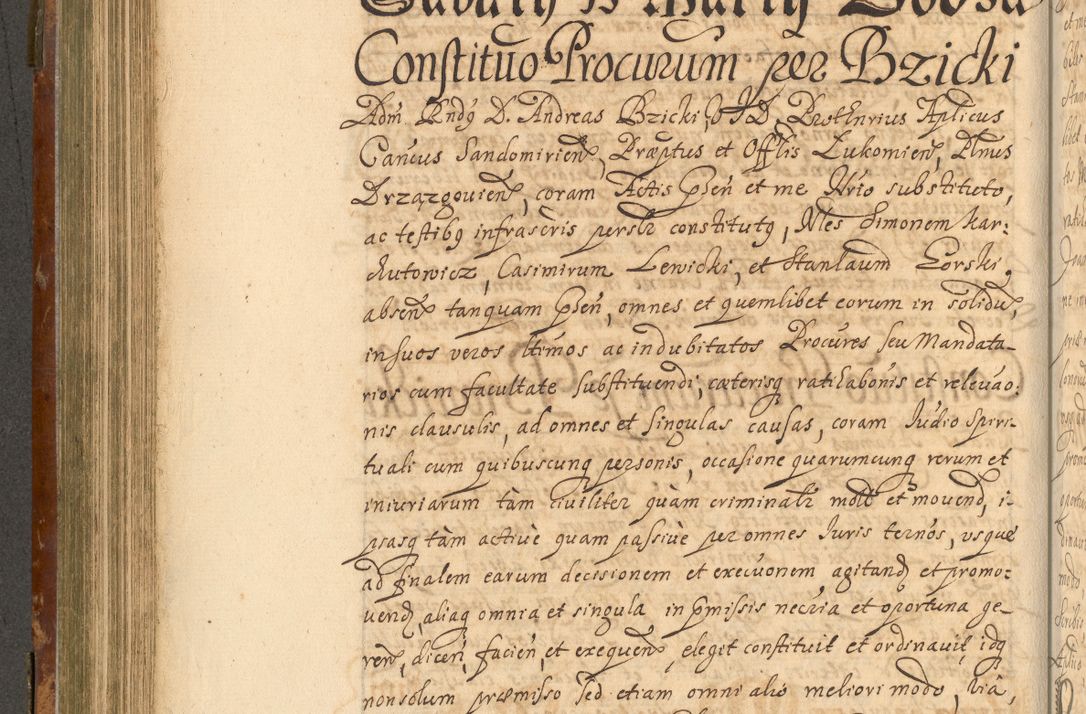 Constituo Procurum per Bzicki
Adm Rndus D. Andreas Bzicki, J V D, Prothnrius Aplicus
Cancus Sandomirien, Præptus et Offlis Lukomien, Plnus
Drzązgouien, coram Actis Psen et me Nrio substituto,
ac testibus infrascris perslr constitutus, Nles Simonem Kar:
wutowicz, Casimirum Lewicki, et Stanlaum Gorski,
absen tanquam Psen, omnes et quemlibet eorum in solidu,
in suos veros ltimos ac indubitatos Procures seu Mandata-
rios cum facultate substituendi, cæterisq ratihabonis et releuao:
nis clausulis, ad omnes et singulas causas, coram Judio Spiri-
tuali cum quibuscunq personis, occasione quarumcunq rerum et
iniuriarum tàm ciuiliter quàm criminalr mott et mouend, i-
psasq tàm actiuè quam passiuè per omnes Iuris ternos, vsque
ad finalem earum decisionem et execuonem agitand et promo:
uend, aliaq omnia et singula in pmissis necria et oportuna ge-
ren, dicen, facien, et exequen, elegit constituit et ordinauit, idq
non solum præmisso sed etiam omni alio meliori modo, via,